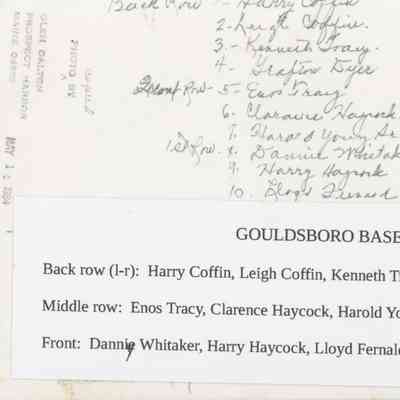 Back Row - Harry Coffin
2 - Leigh Coffin.
3. - Kenneth Tracy.
4 - Grafton Dyer
Second Row - 5 - Enos Tracy
6. Clarence Haycock
7. Harold Young Sr
1st Row. 8. Dannie Whitak
9. Harry Haycock
10. Lloyd Fernald
GLEN DALTON
PROSPECT HARBOR
MAINE 04669
PHOTO BY
MAY 1 1984
GOULDSBORO BASE
Back row (l-r): Harry Coffin, Leigh Coffin, Kenneth T
Middle row: Enos Tracy, Clarence Haycock, Harold Yo
Front: Dannie Whitaker, Harry Haycock, Lloyd Fernal